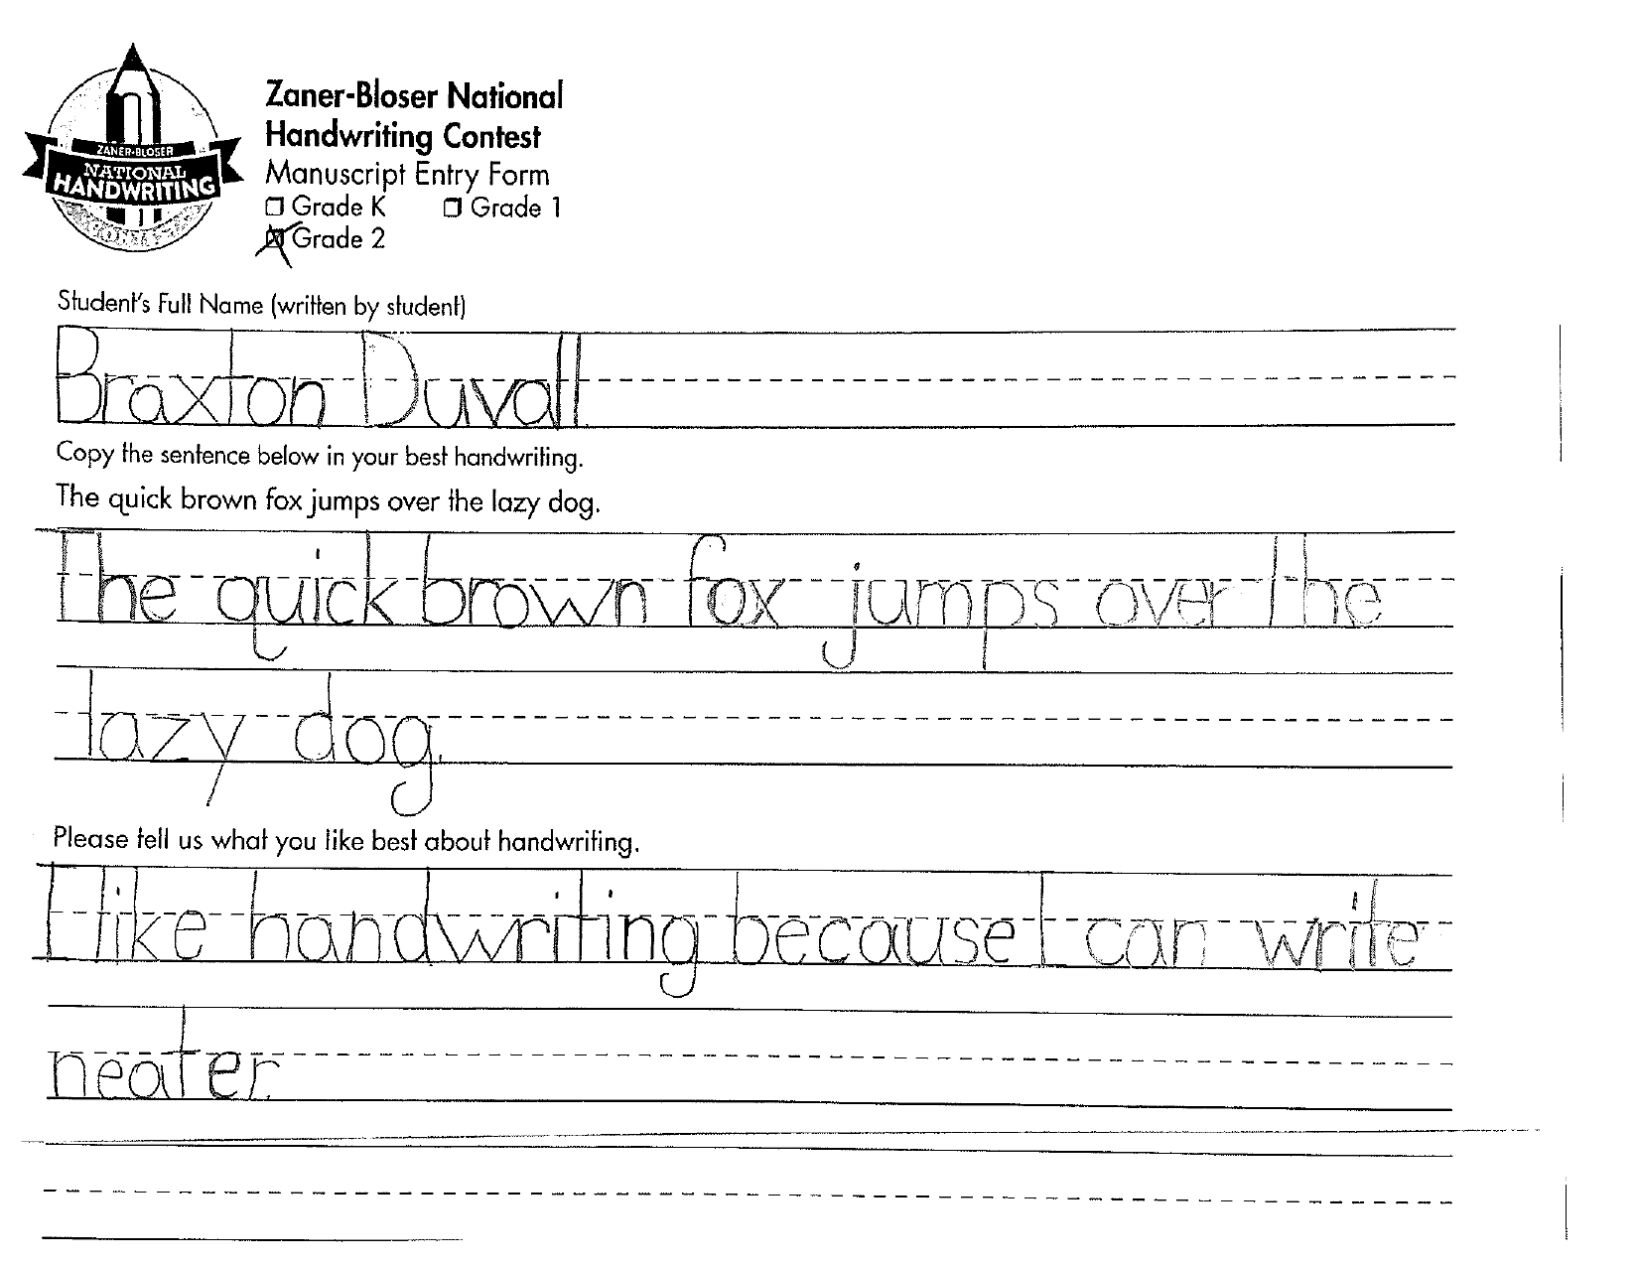 ZANER-BLOSER
NATIONAL
HANDWRITING
CONTEST
Zaner-Bloser National
Handwriting Contest
Manuscript Entry Form
❒ Grade K ❒ Grade 1
☒ Grade 2
Student's Full Name (written by student)
Braxton Duvall
Copy the sentence below in your best handwriting.
The quick brown fox jumps over the lazy dog.
The quick brown fox jumps over the
lazy dog.
Please tell us what you like best about handwriting.
I like handwriting because I can write
neater.